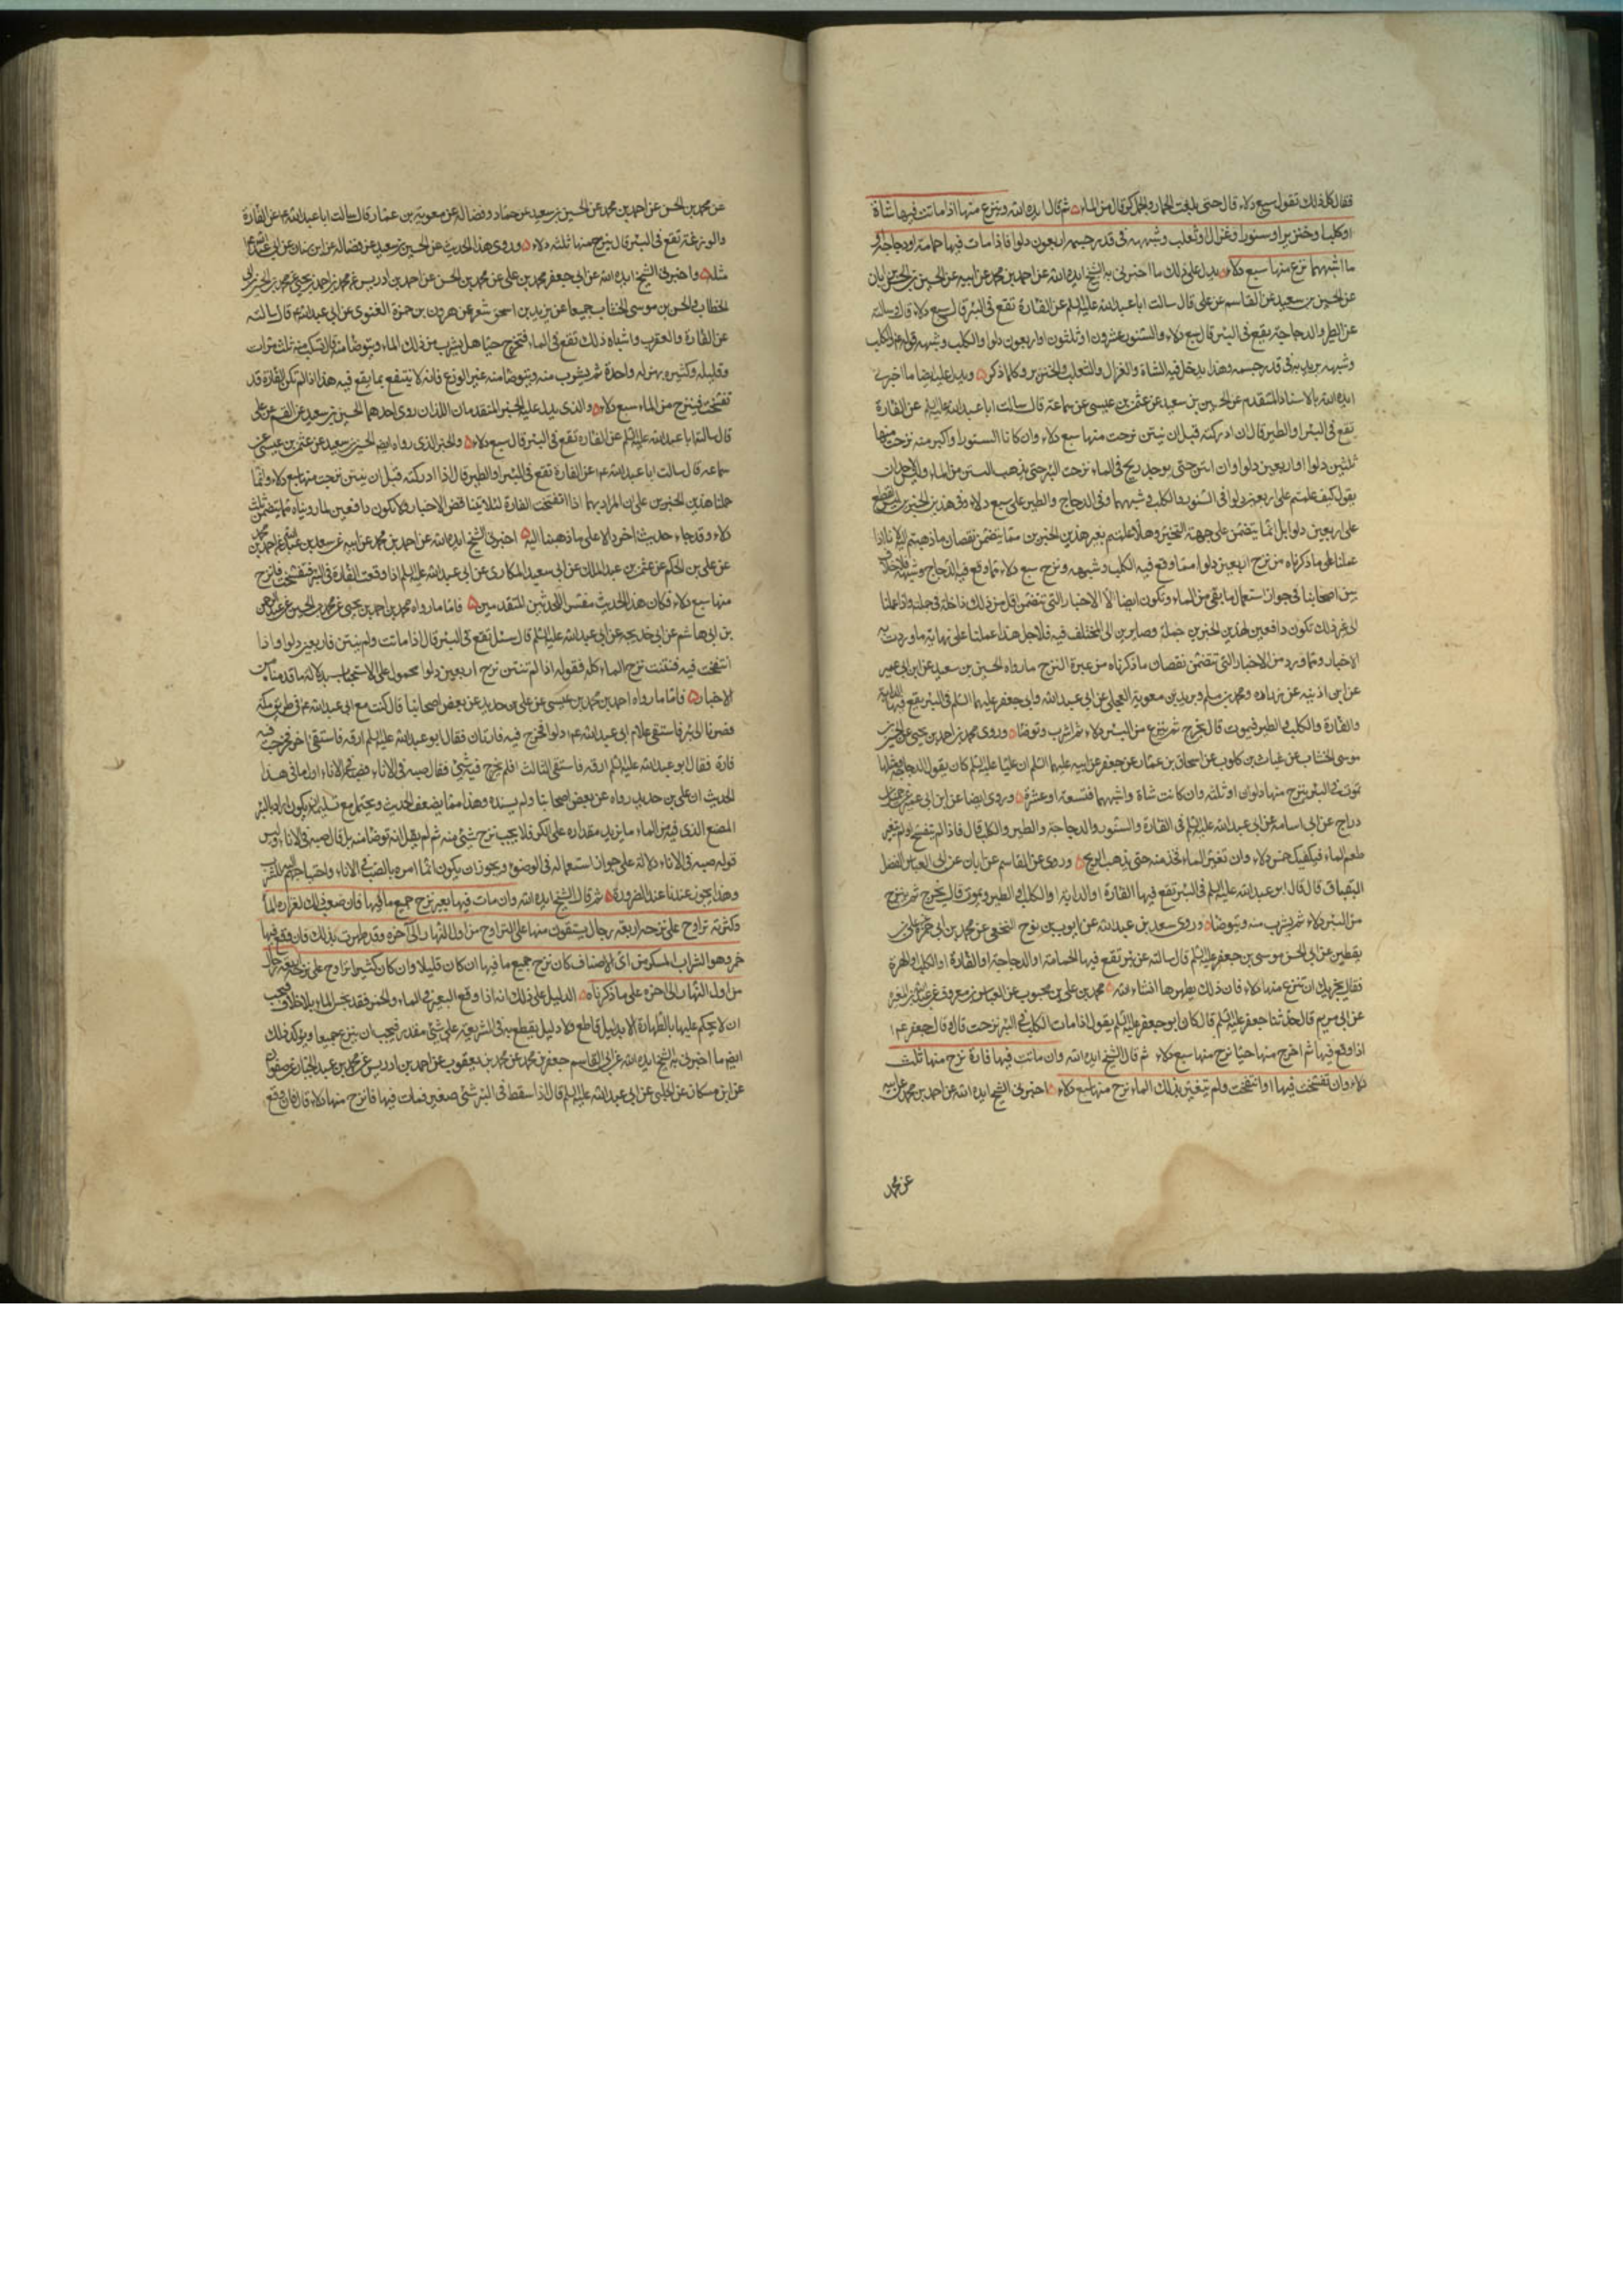 فقال كل ذلك تقول سبع دلاء قال حتى بلغت الحمار والجمل كر قال من الماء ثم قال ايده الله وينزح منها اذا ماتت فيها شاة
او كلب او خنزير او سنور او غزال او ثعلب وشبهه في قدر جسمه اربعون دلوا فاذا مات فيها حمامة او دجاجة او
ما اشبههما نزح منها سبع دلاء يدل على ذلك ما اخبرني به الشيخ ايده الله عن احمد بن محمد عن ابيه عن الحسين بن الحسن بن ابان
عن الحسين بن سعيد عن القاسم عن علي قال سالت ابا عبد الله عليه السلم عن الفارة تقع في البئر قال سبع دلاء قال وسالته
عن الطير والدجاجة يقع في البئر قال سبع دلاء والسنور عشرون او ثلثون او اربعون دلوا والكلب وشبهه قوله والكلب
وشبهه يريد به في قدر جسمه وهذا يدخل فيه الشاة والغزال والثعلب والخنزير وكلما ذكر ويدل عليه ايضا ما اخبرني
ايده الله بالاسناد المتقدم عن الحسين بن سعيد عن عثمن بن عيسى عن سماعة قال سالت ابا عبد الله عليه السلم عن الفارة
تقع في البئر او الطير قال ان ادركته قبل ان ينتن نزحت منها سبع دلاء وان كانا السنور او اكبر منه نزحت منها
ثلثين دلوا او اربعين دلوا وان انتن حتى يوجد ريح في الماء نزحت البئر حتى يذهب النتن من الماء وليس لاحد ان
يقول كيف عملتم على اربعين دلوا في السنور والكلب وشبههما وفي الدجاج والطير على سبع دلاء وفي هذين الخبرين ليس القطع
على اربعين دلوا بل انما يتضمن على جهة التخيير وهلا عملتم بغير هذين الخبرين مما يتضمن نقصان ما ذهبتم اليه لانا اذا
عملنا على ما ذكرناه من نزح اربعين دلوا مما وقع فيه الكلب وشبهه ونزح سبع دلاء مما وقع فيه الدجاج وشبهه فلا خلاف
بين اصحابنا في جواز استعمال ما بقي من الماء وتكون ايضا الاخبار التي تتضمن اقل من ذلك داخلة في جملته واذا عملنا
على غير ذلك نكون دافعين لهذين الخبرين جملة وصايرين الى المختلف فيه فلاجل هذا عملنا على نهاية ما وردت به
الاخبار ومما قد ورد من الاخبار التي تتضمن نقصان ما ذكرناه من عبرة النزح ما رواه الحسين بن سعيد عن ابن ابي عمير
عن ابن اذينه عن زراره ومحمد بن مسلم وبريد بن معوية العجلي عن ابي عبد الله وابي جعفر عليهما السلم في البئر يقع فيها الدابة
والفارة والكلب والطير فيموت قال يخرج ثم ينزح من البئر دلاء ثم اشرب وتوضا وروى محمد بن احمد بن يحيى عن الحسن بن
موسى الخشاب عن غياث بن كلوب عن اسحاق بن عمار عن جعفر عن ابيه عليهما السلم ان عليا عليه السلم كان يقول الدجاجة ومثلها
تموت في البئر ينزح منها دلوان او ثلثه وان كانت شاة وما اشبهها فتسعة او عشرة وروى ايضا عن ابن ابي عمير عن جميل بن
دراج عن ابي اسامة عن ابي عبد الله عليه السلم في الفارة والسنور والدجاجة والطير والكلب قال فاذا لم تتفسخ او لم يتغير
طعم الماء فيكفيك خمس دلاء وان تغير الماء فخذ منه حتى يذهب الريح وروى عن القاسم عن ابان عن ابي العباس الفضل
البقباق قال قال ابو عبد الله عليه السلم في البئر تقع فيها الفارة او الدابة او الكلب او الطير فيموت قال يخرج ثم ينزح
من البئر دلاء ثم يشرب منه ويتوضا وروى سعد بن عبد الله عن ايوب بن نوح النخعي عن محمد بن ابي حمزة عن علي بن
يقطين عن ابي الحسن موسى بن جعفر عليه السلم قال سالته عن بئر تقع فيها الحمامة او الدجاجة او الفارة او الكلب او الهرة
فقال يجزيك ان تنزح منها دلاء فان ذلك يطهرها انشاء الله محمد بن علي بن محبوب عن العباس بن معروف عن عبد الله بن المغيرة
عن ابي مريم قال حدثنا جعفر عليه السلم قال كان ابو جعفر عليه السلم يقول اذا مات الكلب في البئر نزحت قال وقال جعفر عم
اذا وقع فيها ثم اخرج منها حيا نزح منها سبع دلاء ثم قال الشيخ ايده الله وان ماتت فيها فارة نزح منها ثلث
دلاء وان تفسخت فيها او انتفخت ولم يتغير بذلك الماء نزح منها سبع دلاء اخبرني الشيخ ايده الله عن احمد بن محمد عن ابيه
عن محمد
عن محمد بن الحسن عن احمد بن محمد عن الحسين بن سعيد عن حماد وفضالة عن معوية بن عمار قال سالت ابا عبد الله عم عن الفارة
والوزغة تقع في البئر قال ينزح منها ثلثه دلاء وروى هذا الحديث عن الحسين بن سعيد عن فضالة عن ابن سنان عن ابي عبد الله عم
مثله واخبرني الشيخ ايده الله عن ابي جعفر محمد بن علي عن محمد بن الحسن عن احمد بن ادريس عن محمد بن احمد بن يحيى عن محمد بن الحسين بن ابي
الخطاب والحسن بن موسى الخشاب جميعا عن يزيد بن اسحق شعر عن هرون بن حمزة الغنوي عن ابي عبد الله عم قال سالته
عن الفارة والعقرب واشباه ذلك تقع في الماء فتخرج حيا هل يشرب من ذلك الماء ويتوضا منه قال تسكب منه ثلث مرات
وقليله وكثيره بمنزلة واحدة ثم يشرب منه ويتوضا منه غير الوزغ فانه لا ينتفع بما يقع فيه هذا اذا لم تكن الفارة قد
تفسخت فينزح من الماء سبع دلاء والذي يدل عليه الخبر المتقدمان اللذان روى احدهما الحسين بن سعيد عن القسم عن علي
قال سالت ابا عبد الله عليه السلم عن الفارة تقع في البئر قال سبع دلاء والخبر الذي رواه ايضا الحسين بن سعيد عن عثمن بن عيسى عن
سماعه قال سالت ابا عبد الله عم عن الفارة تقع في البئر او الطير قال اذا ادركته قبل ان ينتن نزحت منها سبع دلاء وانما
حملنا هذين الخبرين على ان المراد بهما اذا تفسخت الفارة لئلا يتناقض الاخبار ولا نكون دافعين لما رويناه مما يتضمن ثلث
دلاء وقد جاء حديث اخر دالا على ما ذهبنا اليه اخبرني الشيخ ايده الله عن احمد بن محمد عن ابيه عن سعد بن عبد الله عن احمد بن محمد
عن علي بن الحكم عن عثمن بن عبد الملك عن ابي سعيد المكاري عن ابي عبد الله عليه السلم اذا وقعت الفارة في البئر فتفسخت فانزح
منها سبع دلاء فكان هذا الحديث مفسر للحديثين المتقدمين فاما ما رواه محمد بن احمد بن يحيى عن محمد بن الحسين عن عبد الرحمن
بن ابي هاشم عن ابي خديجه عن ابي عبد الله عليه السلم قال سئل تقع في البئر قال اذا ماتت ولم ينتن فاربعين دلوا واذا
انتفخت فيه فنتنت نزح الماء كله فقوله اذا لم تنتن نزح اربعين دلوا محمول على الاستحباب بدلالة ما قدمناه من
الاخبار فاما ما رواه احمد بن محمد بن عيسى عن علي بن حديد عن بعض اصحابنا قال كنت مع ابي عبد الله عم في طريق مكة
فصرنا الى بئر فاستقى غلام ابي عبد الله عم دلوا فخرج فيه فارتان فقال ابو عبد الله عليه السلم ارقه فاستقى اخر فخرجت فيه
فارة فقال ابو عبد الله عليه السلم ارقه فاستقى الثالث فلم يخرج فيه شئ فقال صبه في الاناء فصبه في الاناء اول ما في هذا
الحديث ان علي بن حديد رواه عن بعض اصحابنا ولم يسنده وهذا مما يضعف الحديث ويحتمل مع تسليمه ان يكون اراد بالبئر
المصنع الذي فيه من الماء ما يزيد مقداره على الكر فلا يجب نزح شئ منه ثم لم يقل انه توضا منه بل قال صبه في الاناء وليس
قوله صبه في الاناء دلالة على جواز استعماله في الوضوء ويجوز ان يكون انما امره بالصب في الاناء لاحتياجهم اليه للشرب
وهذا يجوز عندنا عند الضرورة ثم قال الشيخ ايده الله وان مات فيها بعير نزح جميع ما فيها فان صعب ذلك لغزارة الماء
وكثرته تراوح على نزحه اربعة رجال يستقون منها على التراوح من اول النهار الى آخره وقد طهرت بذلك فان وقع فيها
خمر وهو الشراب المسكر من اي الاصناف كان نزح جميع ما فيها ان كان قليلا وان كان كثيرا تراوح على نزحه اربعة رجال
من اول النهار الى اخره على ما ذكرناه الدليل على ذلك انه اذا وقع البعير في الماء والخمر فقد نجس الماء بلا خلاف فيجب
ان لا يحكم عليها بالطهارة الا بدليل قاطع ولا دليل يقطع به في الشريعة على شئ مقدر فيجب ان ينزح جميعا ويؤكد ذلك
ايضا ما اخبرني به الشيخ ايده الله عن ابي القاسم جعفر بن محمد عن محمد بن يعقوب عن احمد بن ادريس عن محمد بن عبد الجبار عن صفوان
عن ابن مسكان عن الحلبي عن ابي عبد الله عليه السلم قال اذا سقط في البئر شئ صغير فمات فيها فانزح منها دلاء قال فان وقع